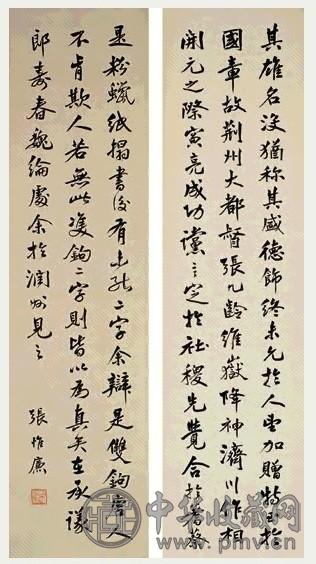 其雄名没猶称其盛德飾終未允於人望加贈特可於
國章故荆州大都督張九齡維嶽降神濟川作相
開元之際寅亮成功讜言定於社稷先覺合於蓍蔡
是粉蠟紙搨書後有二字余辯是雙鉤唐人
不肯欺人若無此雙鉤二字則皆以為真矣在承議
郎壽春魏綸處余於潤州見之
張惟
中华收藏网
www.pmv.cn